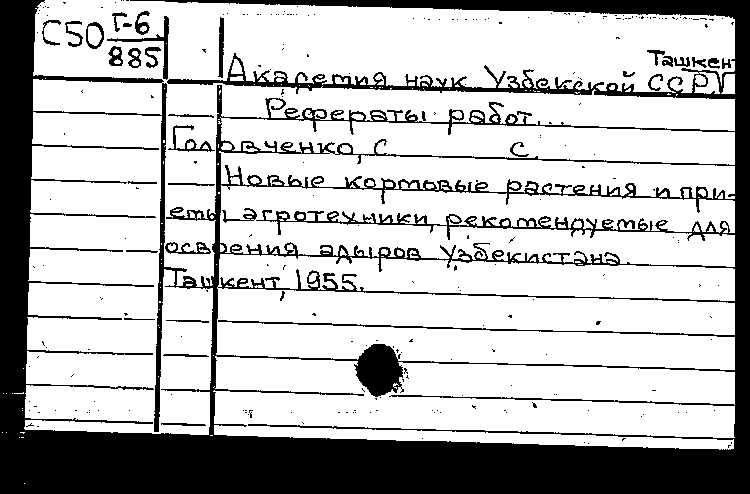 С50 Т-6
885
Ташкент
Академия наук Узбекской ССР.
Рефераты работ...
Головченко, С. С.
Новые кормовые растения и при-
емы агротехники, рекомендуемые для
освоения адыров Узбекистана.
Ташкент, 1955.